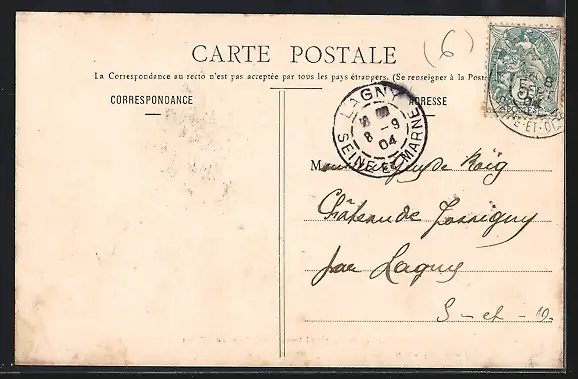 (6)
CARTE POSTALE
La Correspondance au recto n'est pas acceptée par tous les pays étrangers. (Se renseigner à la Poste
CORRESPONDANCE
ADRESSE
LAGNY
8 - 9
04
SEINE-ET-MARNE
M
Château de Jossigny
par Lagny
S-et-M.